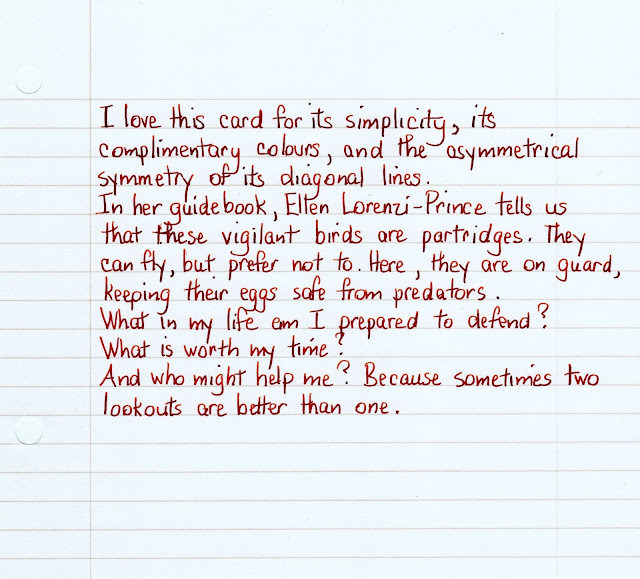 I love this card for its simplicity, its
complimentary colours, and the asymmetrical
symmetry of its diagonal lines.
In her guidebook, Ellen Lorenzi-Prince tells us
that these vigilant birds are partridges. They
can fly, but prefer not to. Here, they are on guard,
keeping their eggs safe from predators.
What in my life am I prepared to defend?
What is worth my time?
And who might help me? Because sometimes two
lookouts are better than one.